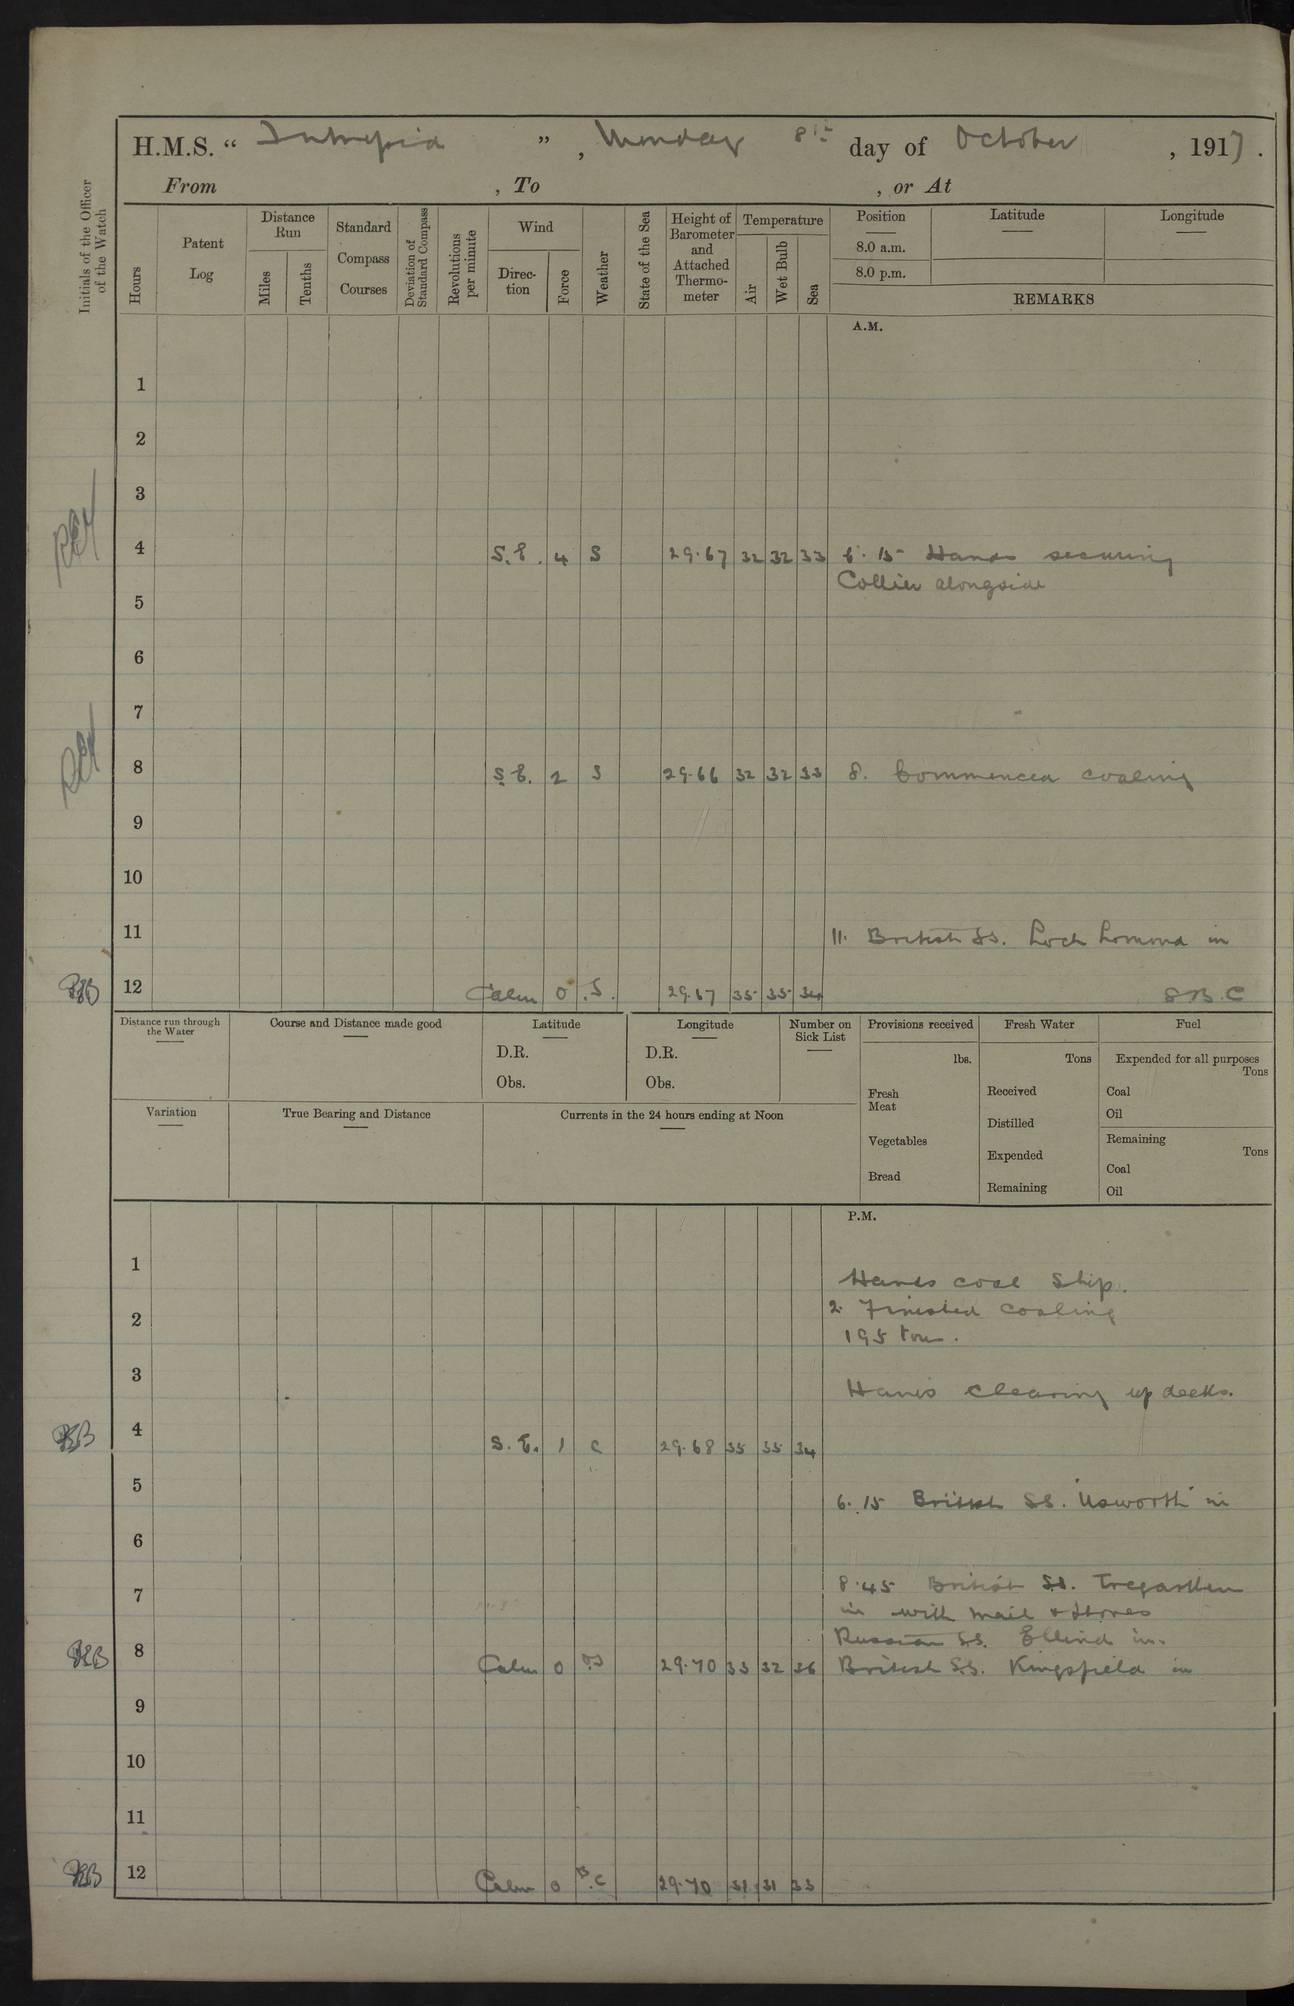 H.M.S. “ Intrepid ” , Monday 8th day of October , 1917 .
From , To , or At
Initials of the Officer of the Watch
Hours
Patent Log
Distance Run
Miles
Tenths
Standard Compass Courses
Deviation of Standard Compass
Revolutions per minute
Wind
Direc-tion
Force
Weather
State of the Sea
Height of Barometer and Attached Thermo-meter
Temperature
Air
Wet Bulb
Sea
Position
8.0 a.m.
8.0 p.m.
Latitude
Longitude
REMARKS
A.M.
1
2
3
4 S.E. 4 S 29.67 32 32 33 6.15 Hands securing
Collier alongside
5
6
7
8 S.E. 2 S 29.66 32 32 33 8. Commenced coaling
9
10
11 11. British SS. Loch Lomond in
12 Calm 0 .S. 29.67 35 35 34
Distance run through the Water
Course and Distance made good
Latitude
D.R.
Obs.
Longitude
D.R.
Obs.
Number on Sick List
Provisions received
lbs.
Fresh Meat
Vegetables
Bread
Fresh Water
Tons
Received
Distilled
Expended
Remaining
Fuel
Expended for all purposes
Tons
Coal
Oil
Remaining
Tons
Coal
Oil
Variation
True Bearing and Distance
Currents in the 24 hours ending at Noon
P.M.
1
Hands coal ship.
2 2. Finished coaling
195 tons.
3
Hands clearing up decks.
4 S.E. 1 C 29.68 35 35 34
5
6.15 British SS. Usworth in
6
7 8.45 British SS. Tregarthen
in with mail & stores
Russian SS. in.
8 Calm 0 29.70 33 32 36 British SS. Kingsfield in
9
10
11
12 Calm 0 B.C 29.70 31 31 33